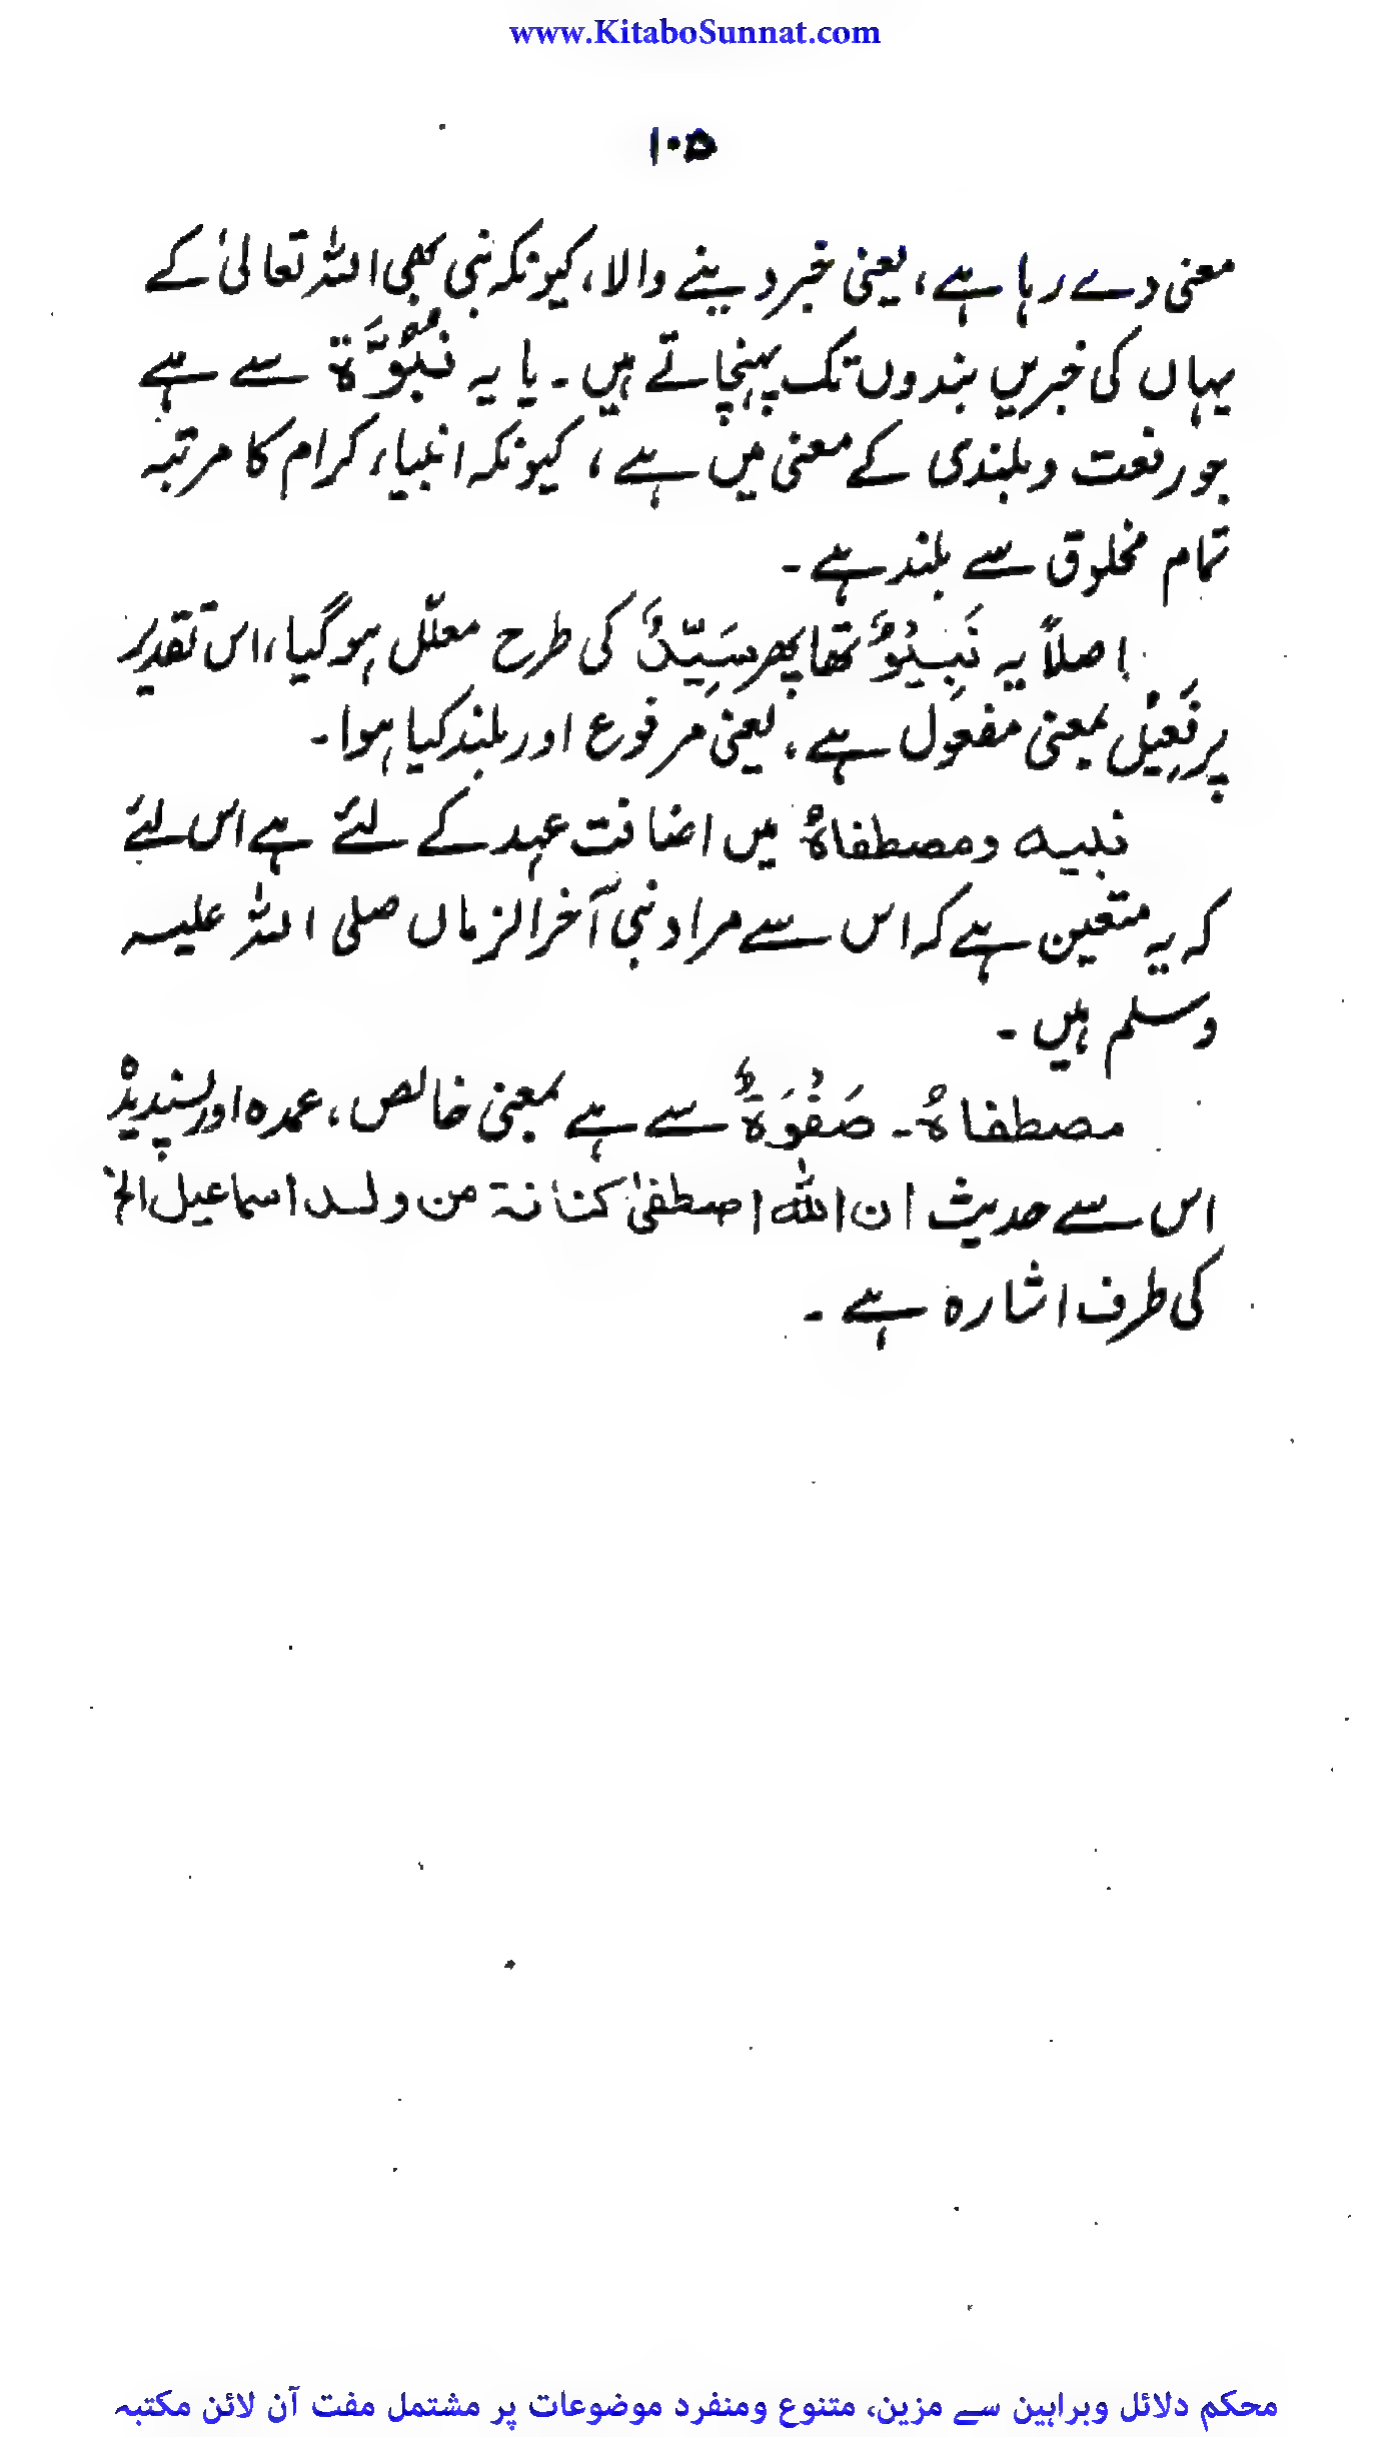 www.KitaboSunnat.com
۱۰۵
معنی دے رہا ہے، یعنی خبر دینے والا، کیونکہ نبی بھی اللہ تعالیٰ کے
یہاں کی خبریں بندوں تک پہنچاتے ہیں ۔ یا یہ نُبُوَّةٌ سے ہے
جو رفعت و بلندی کے معنی میں ہے ، کیونکہ انبیاء کرام کا مرتبہ
تمام مخلوق سے بلند ہے ۔
اصلاً یہ نَبِیْوٌ تھا پھر سَیِّدٌ کی طرح معلّل ہوگیا، اس تقدیر
پر فَعِیْل بمعنی مفعول ہے، یعنی مرفوع اور بلند کیا ہوا۔
نبیہ ومصطفاہُ میں اضافت عہد کے لئے ہے اس لئے
کہ یہ متعین ہے کہ اس سے مراد نبی آخر الزماں صلی اللہ علیہ
وسلم ہیں ۔
مصطفاہُ ۔ صَفْوَةٌ سے ہے بمعنی خالص، عمدہ اور پسندیدہ
اس سے حدیث ان اللہ اصطفیٰ کنانۃ من ولد اسماعیل الخ
کی طرف اشارہ ہے ۔
محکم دلائل وبراہین سے مزین، متنوع ومنفرد موضوعات پر مشتمل مفت آن لائن مکتبہ